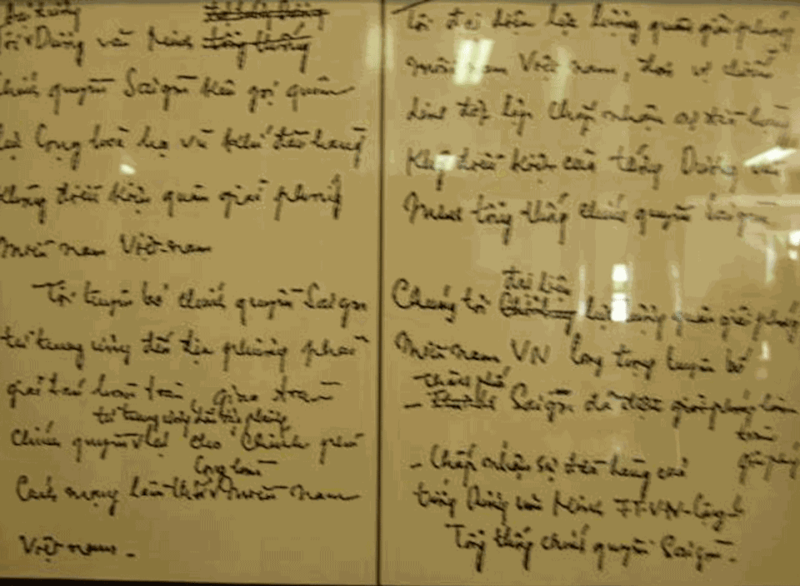 đại tướng
Tôi Dương văn Minh tổng thống
chính quyền Saigon kêu gọi quân
lực Cộng hoà hạ vũ khí đầu hàng
không điều kiện quân giải phóng
miền nam Việt-nam
Tôi tuyên bố chính quyền Saigon
từ trung ương đến địa phương phải
giải tán hoàn toàn, giao toàn
chính quyền từ trung ương đến địa phương lại cho chính phủ
Cách mạng lâm thời Cộng hoà miền nam
Việt nam -
Tôi đại diện lực lượng quân giải phóng
miền nam Việt nam,
chấp nhận sự đầu hàng
không điều kiện của tướng Dương văn
Minh tổng thống chính quyền Saigon
Chúng tôi đại diện lực lượng quân giải phóng
miền nam VN long trọng tuyên bố
- thành phố Saigon đã được giải phóng hoàn
toàn
- Chấp nhận sự đầu hàng của
tướng Dương văn Minh
Tổng thống chính quyền Saigon -